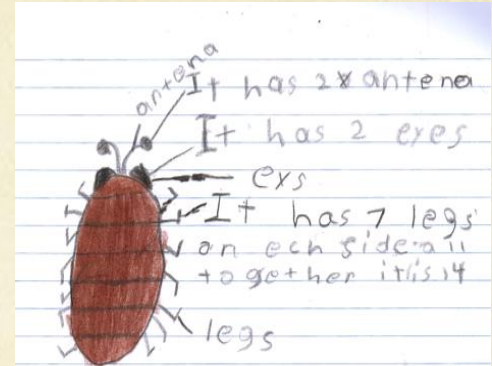 antena
It has 2 antena
It has 2 eyes
exs
It has 7 legs
on ech side all
together it is 14
legs